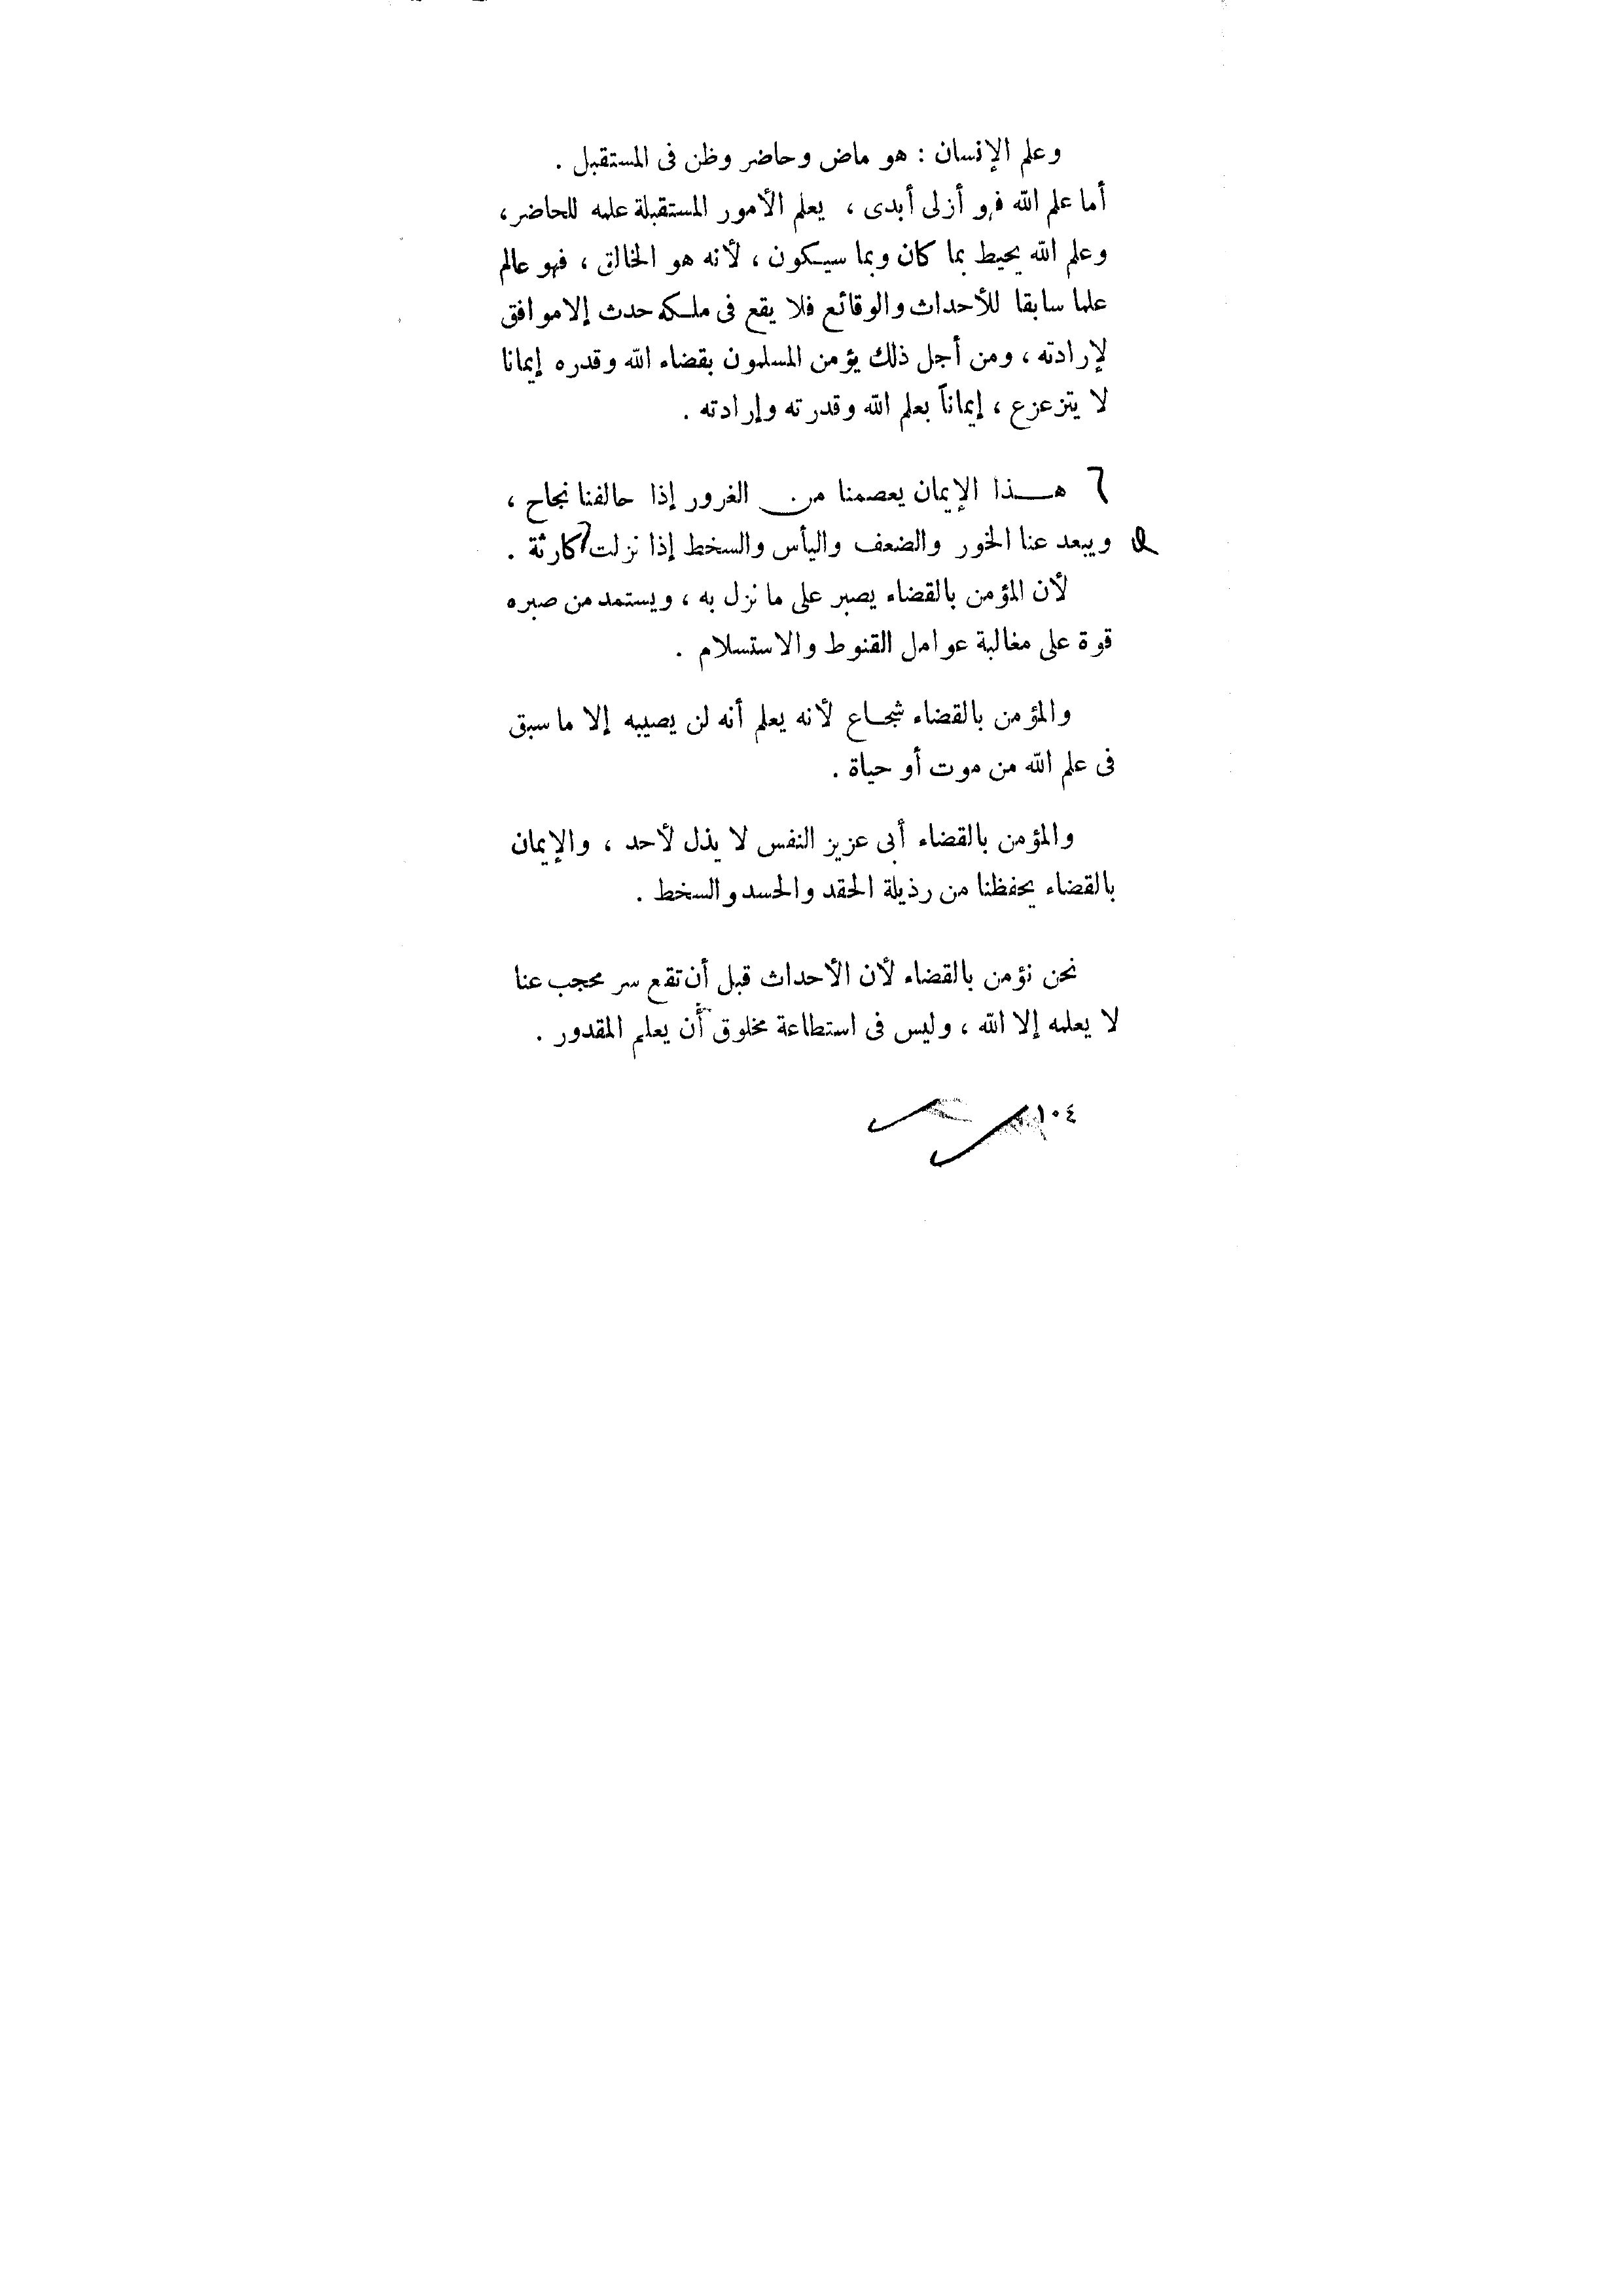 وعلم الإنسان : هو ماض وحاضر وظن فى المستقبل .
أما علم الله فهو أزلى أبدى ، يعلم الأمور المستقبلة علمه للحاضر ،
وعلم الله يحيط بما كان وبما سيكون ، لأنه هو الخالق ، فهو عالم
علما سابقا للأحداث والوقائع فلا يقع فى ملكه حدث إلا موافق
لإرادته ، ومن أجل ذلك يؤمن المسلمون بقضاء الله وقدره إيمانا
لا يتزعزع ، إيماناً بعلم الله وقدرته وإرادته .
هذا الإيمان يعصمنا من الغرور إذا حالفنا نجاح ،
ويبعد عنا الخور والضعف واليأس والسخط إذا نزلت كارثة .
لأن المؤمن بالقضاء يصبر على ما نزل به ، ويستمد من صبره
قوة على مغالبة عوامل القنوط والاستسلام .
والمؤمن بالقضاء شجاع لأنه يعلم أنه لن يصيبه إلا ما سبق
فى علم الله من موت أو حياة .
والمؤمن بالقضاء أبى عزيز النفس لا يذل لأحد ، والإيمان
بالقضاء يحفظنا من رذيلة الحقد والحسد والسخط .
نحن نؤمن بالقضاء لأن الأحداث قبل أن تقع سر محجب عنا
لا يعلمه إلا الله ، وليس فى استطاعة مخلوق أن يعلم المقدور .
١٠٤